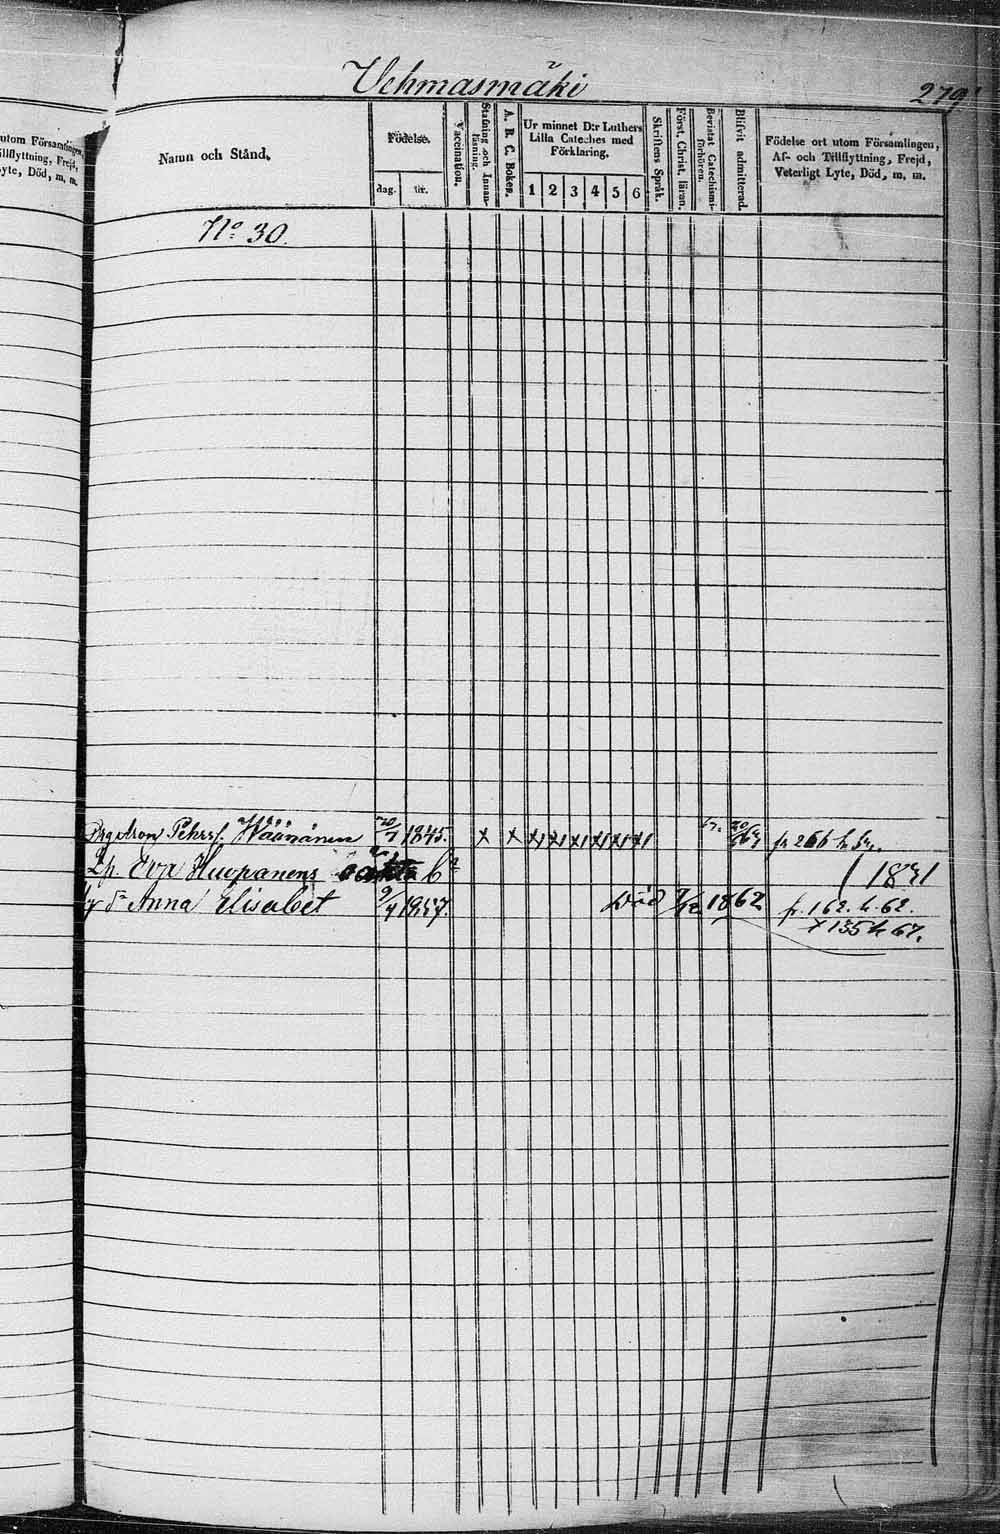 Vehmasmäki
279
utom Församlingen,
Tillflyttning, Frejd,
Lyte, Död, m. m.
Namn och Stånd.
Födelse.
dag.
år.
Vaccination.
Stafning och Innanläsning.
A. B. C. Boken.
Ur minnet D:r Luthers Lilla Cateches med Förklaring.
1 2 3 4 5 6
Skriftens Språk.
Först. Christ. läran.
Bevistat Catechismiförhören.
Blifvit admitterad.
Födelse ort utom Församlingen, Af- och Tillflyttning, Frejd, Veterligt Lyte, Död, m. m.
No 30.
Aron Pehrss. Wäänänen 20/7 1845. x x x x x x x x fr 266
Eva Huupanens
1871
Anna Elisabet 9/4 Död 7/12 1862 fr. 162. h. 62.
x 135 h 67.